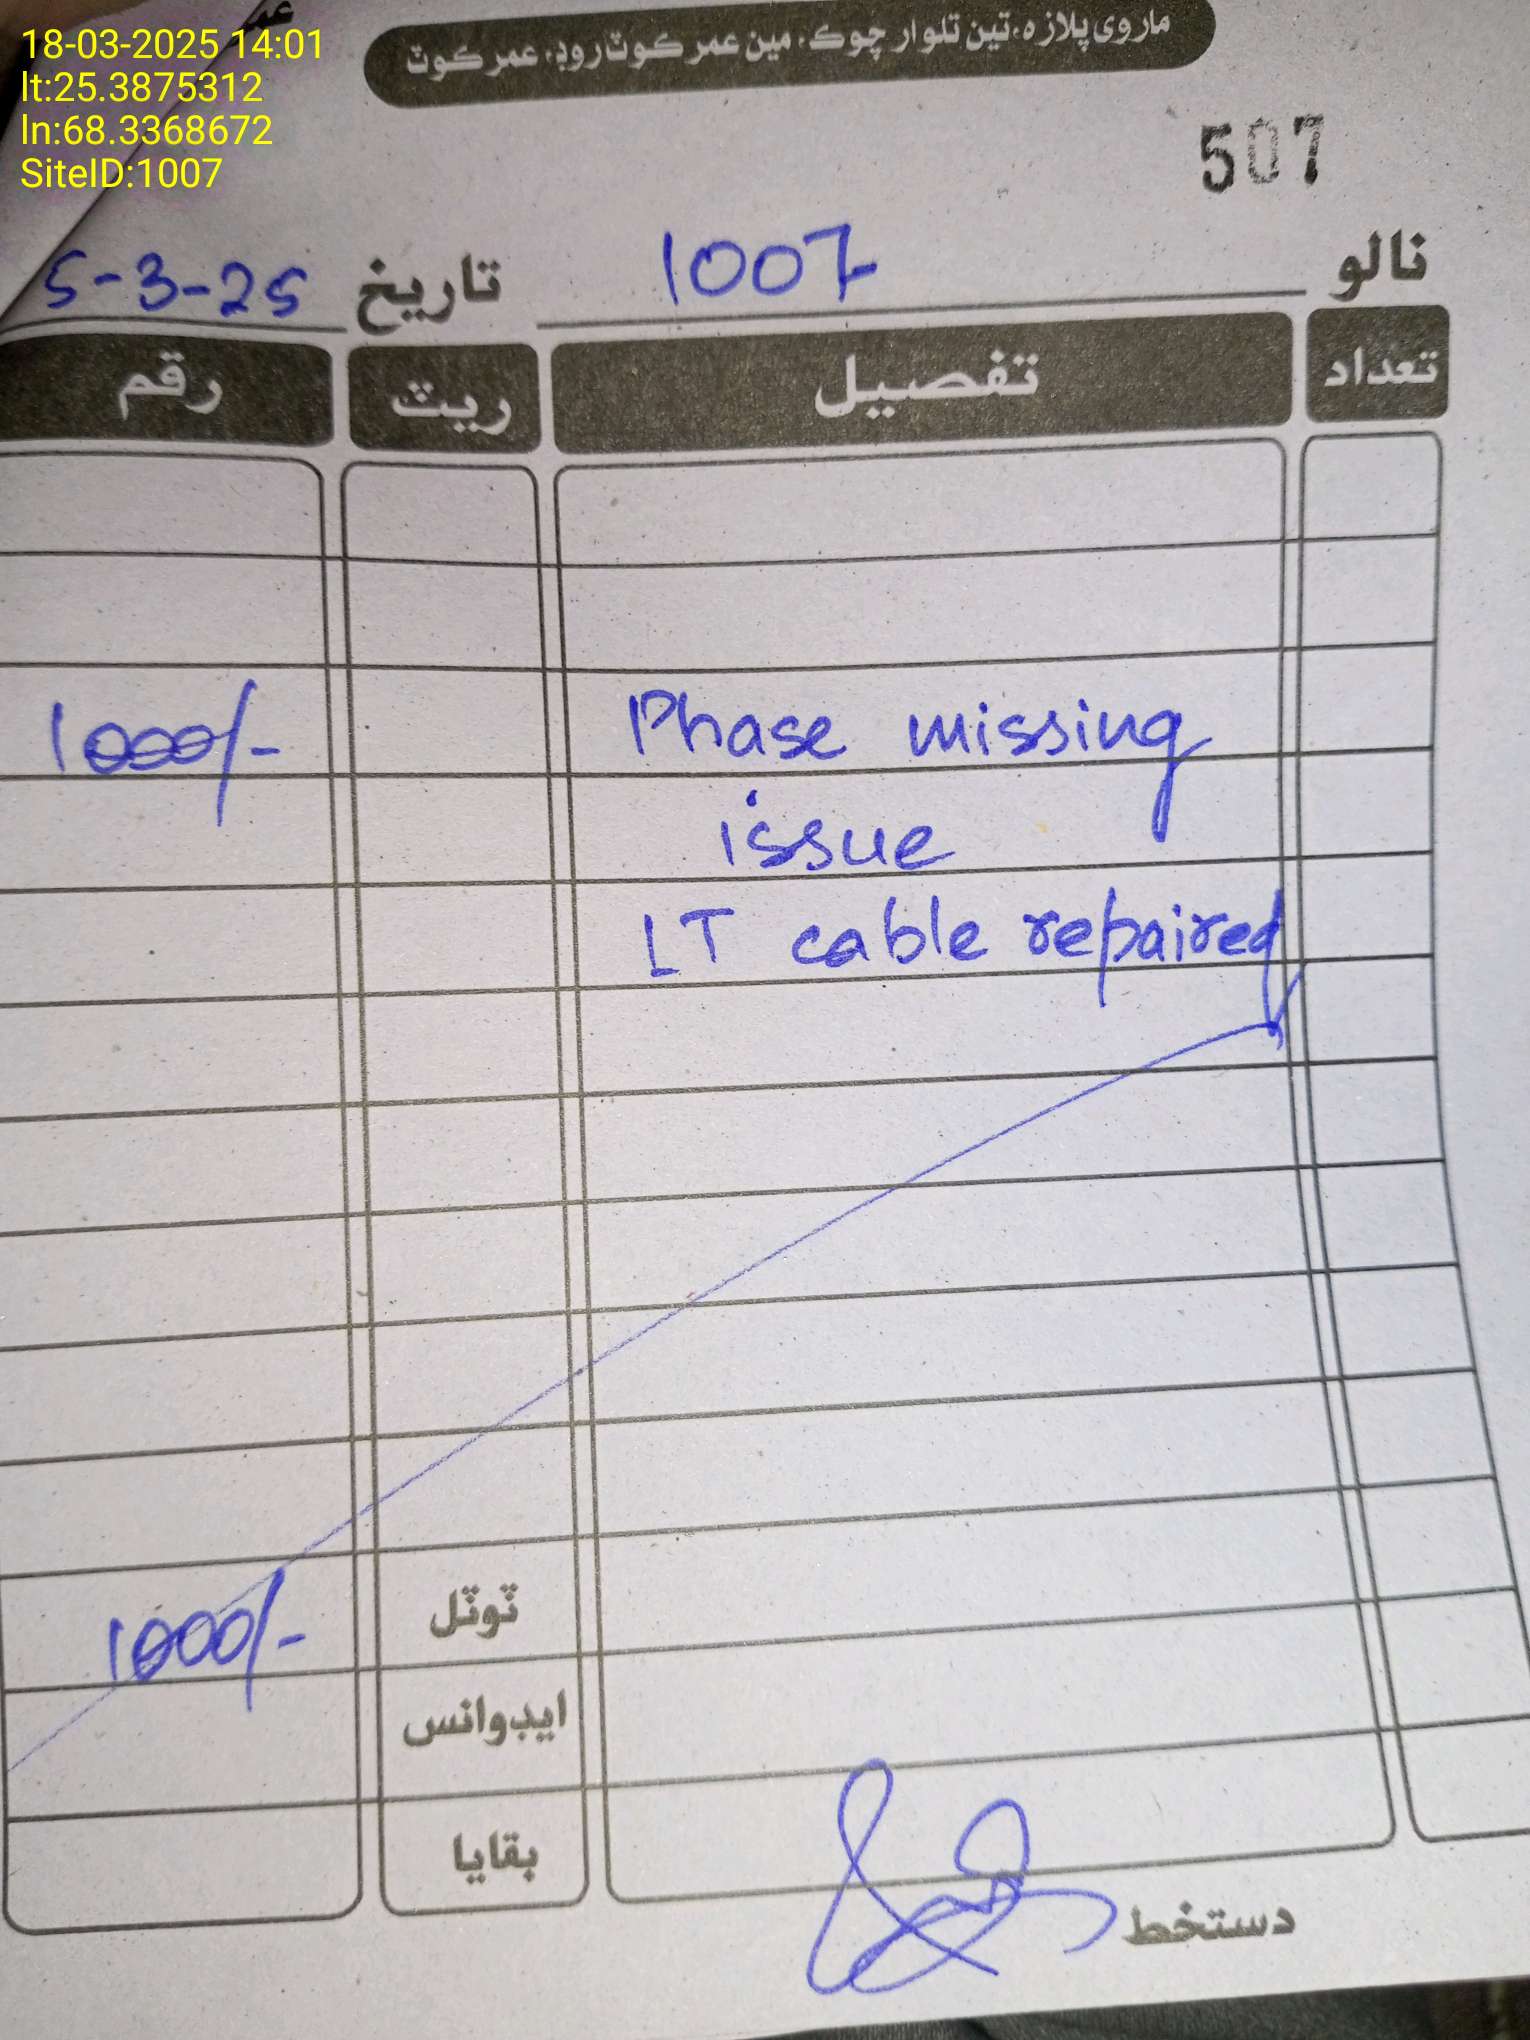 18-03-2025 14:01
lt:25.3875312
ln:68.3368672
SiteID:1007
ماروي پلازه، تين تلوار چوڪ، مين عمر ڪوٽ روڊ، عمر ڪوٽ
507
نالو 1007 تاريخ 5-3-25
تعداد تفصيل ريٽ رقم
Phase missing 1000/-
issue
LT cable repaired
ٽوٽل 1000/-
ايڊوانس
بقايا
دستخط